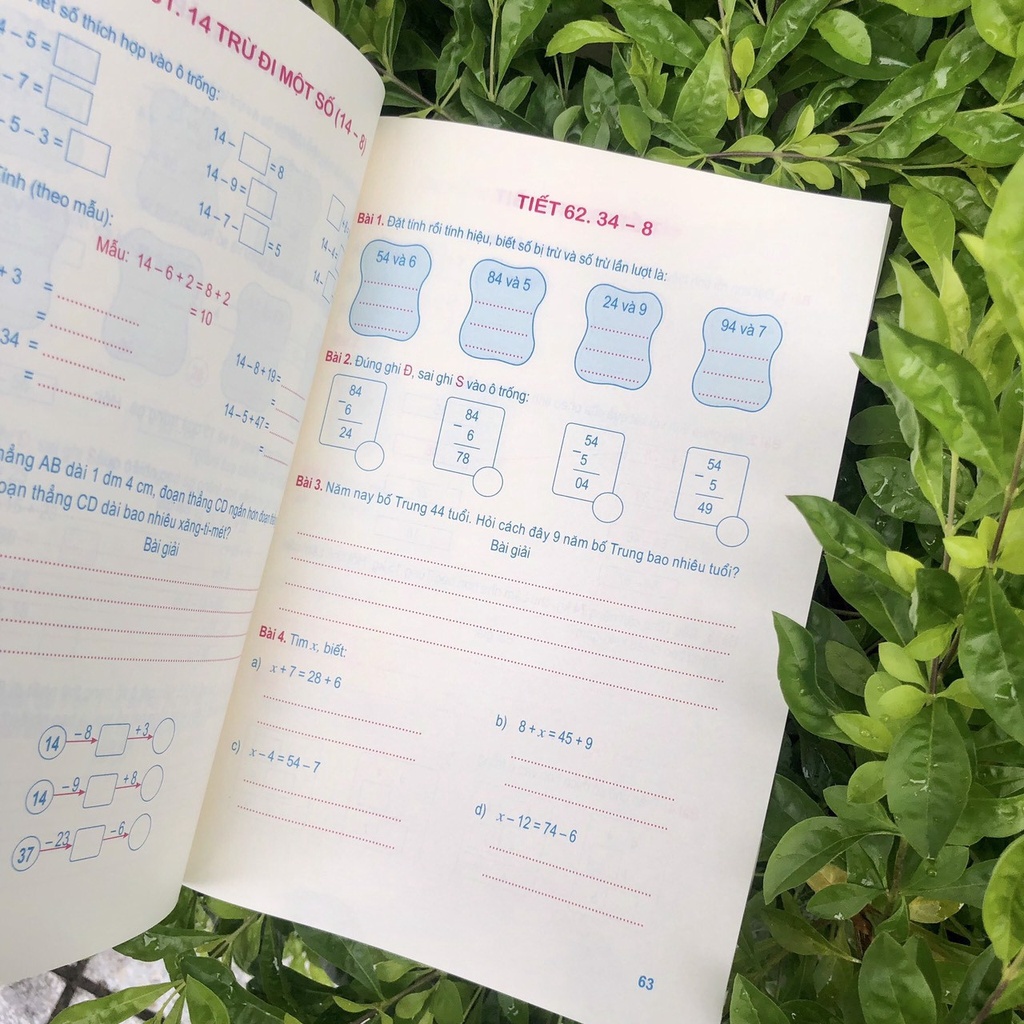 14 TRỪ ĐI MỘT SỐ (14 – 8)
số thích hợp vào ô trống:
– 5 =
– 7 =
– 5 – 3 =
14 – = 8
14 – 9 =
14 – 7 – = 5
14 – 4 =
14 –
Tính (theo mẫu):
Mẫu: 14 – 6 + 2 = 8 + 2
= 10
+ 3 =
=
34 =
=
14 – 8 + 19 =
=
14 – 5 + 47 =
=
thẳng AB dài 1 dm 4 cm, đoạn thẳng CD ngắn hơn đoạn
đoạn thẳng CD dài bao nhiêu xăng-ti-mét?
Bài giải
14 – 8 + 3
14 – 9 + 8
37 – 23 – 6
TIẾT 62. 34 – 8
Bài 1. Đặt tính rồi tính hiệu, biết số bị trừ và số trừ lần lượt là:
54 và 6
84 và 5
24 và 9
94 và 7
Bài 2. Đúng ghi Đ, sai ghi S vào ô trống:
84
–
6
24
84
–
6
78
54
–
5
04
54
–
5
49
Bài 3. Năm nay bố Trung 44 tuổi. Hỏi cách đây 9 năm bố Trung bao nhiêu tuổi?
Bài giải
Bài 4. Tìm x, biết:
a) x + 7 = 28 + 6
b) 8 + x = 45 + 9
c) x – 4 = 54 – 7
d) x – 12 = 74 – 6
63